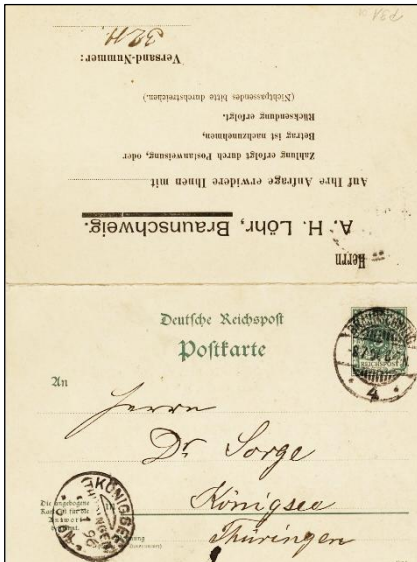 Herrn
A. H. Löhr, Braunschweig.
Auf Ihre Anfrage erwidere Ihnen mit
Zahlung erfolgt durch Postanweisung, oder
Betrag ist nachzunehmen,
Rücksendung erfolgt.
(Nichtpassendes bitte durchstreichen.)
Versand-Nummer:
Deutsche Reichspost
Postkarte
BRAUNSCHWEIG
REICHSPOST
4
An
Herrn
Dr Sorge
Königsee
Thüringen
KÖNIGSEE
THÜRINGEN
Die angebogene
Karte ist für die
Antwort
bestimmt.